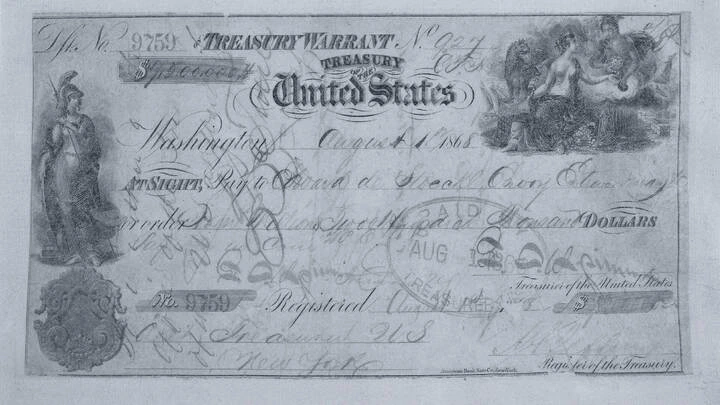 Dft. No. 9759 on TREASURY WARRANT No. 927
TREASURY
OF THE
$7,200,000
United States
Washington, August 1st 1868
AT SIGHT, Pay to Edward de Stoeckl Envoy Extraordinary &c
or order Seven Million Two Hundred Thousand DOLLARS
PAID
AUG 1 1868
TREASURER
Treasurer of the United States
No. 9759 Registered August 1st
Treasurer U S
New York
Register of the Treasury.
American Bank Note Co. New York.